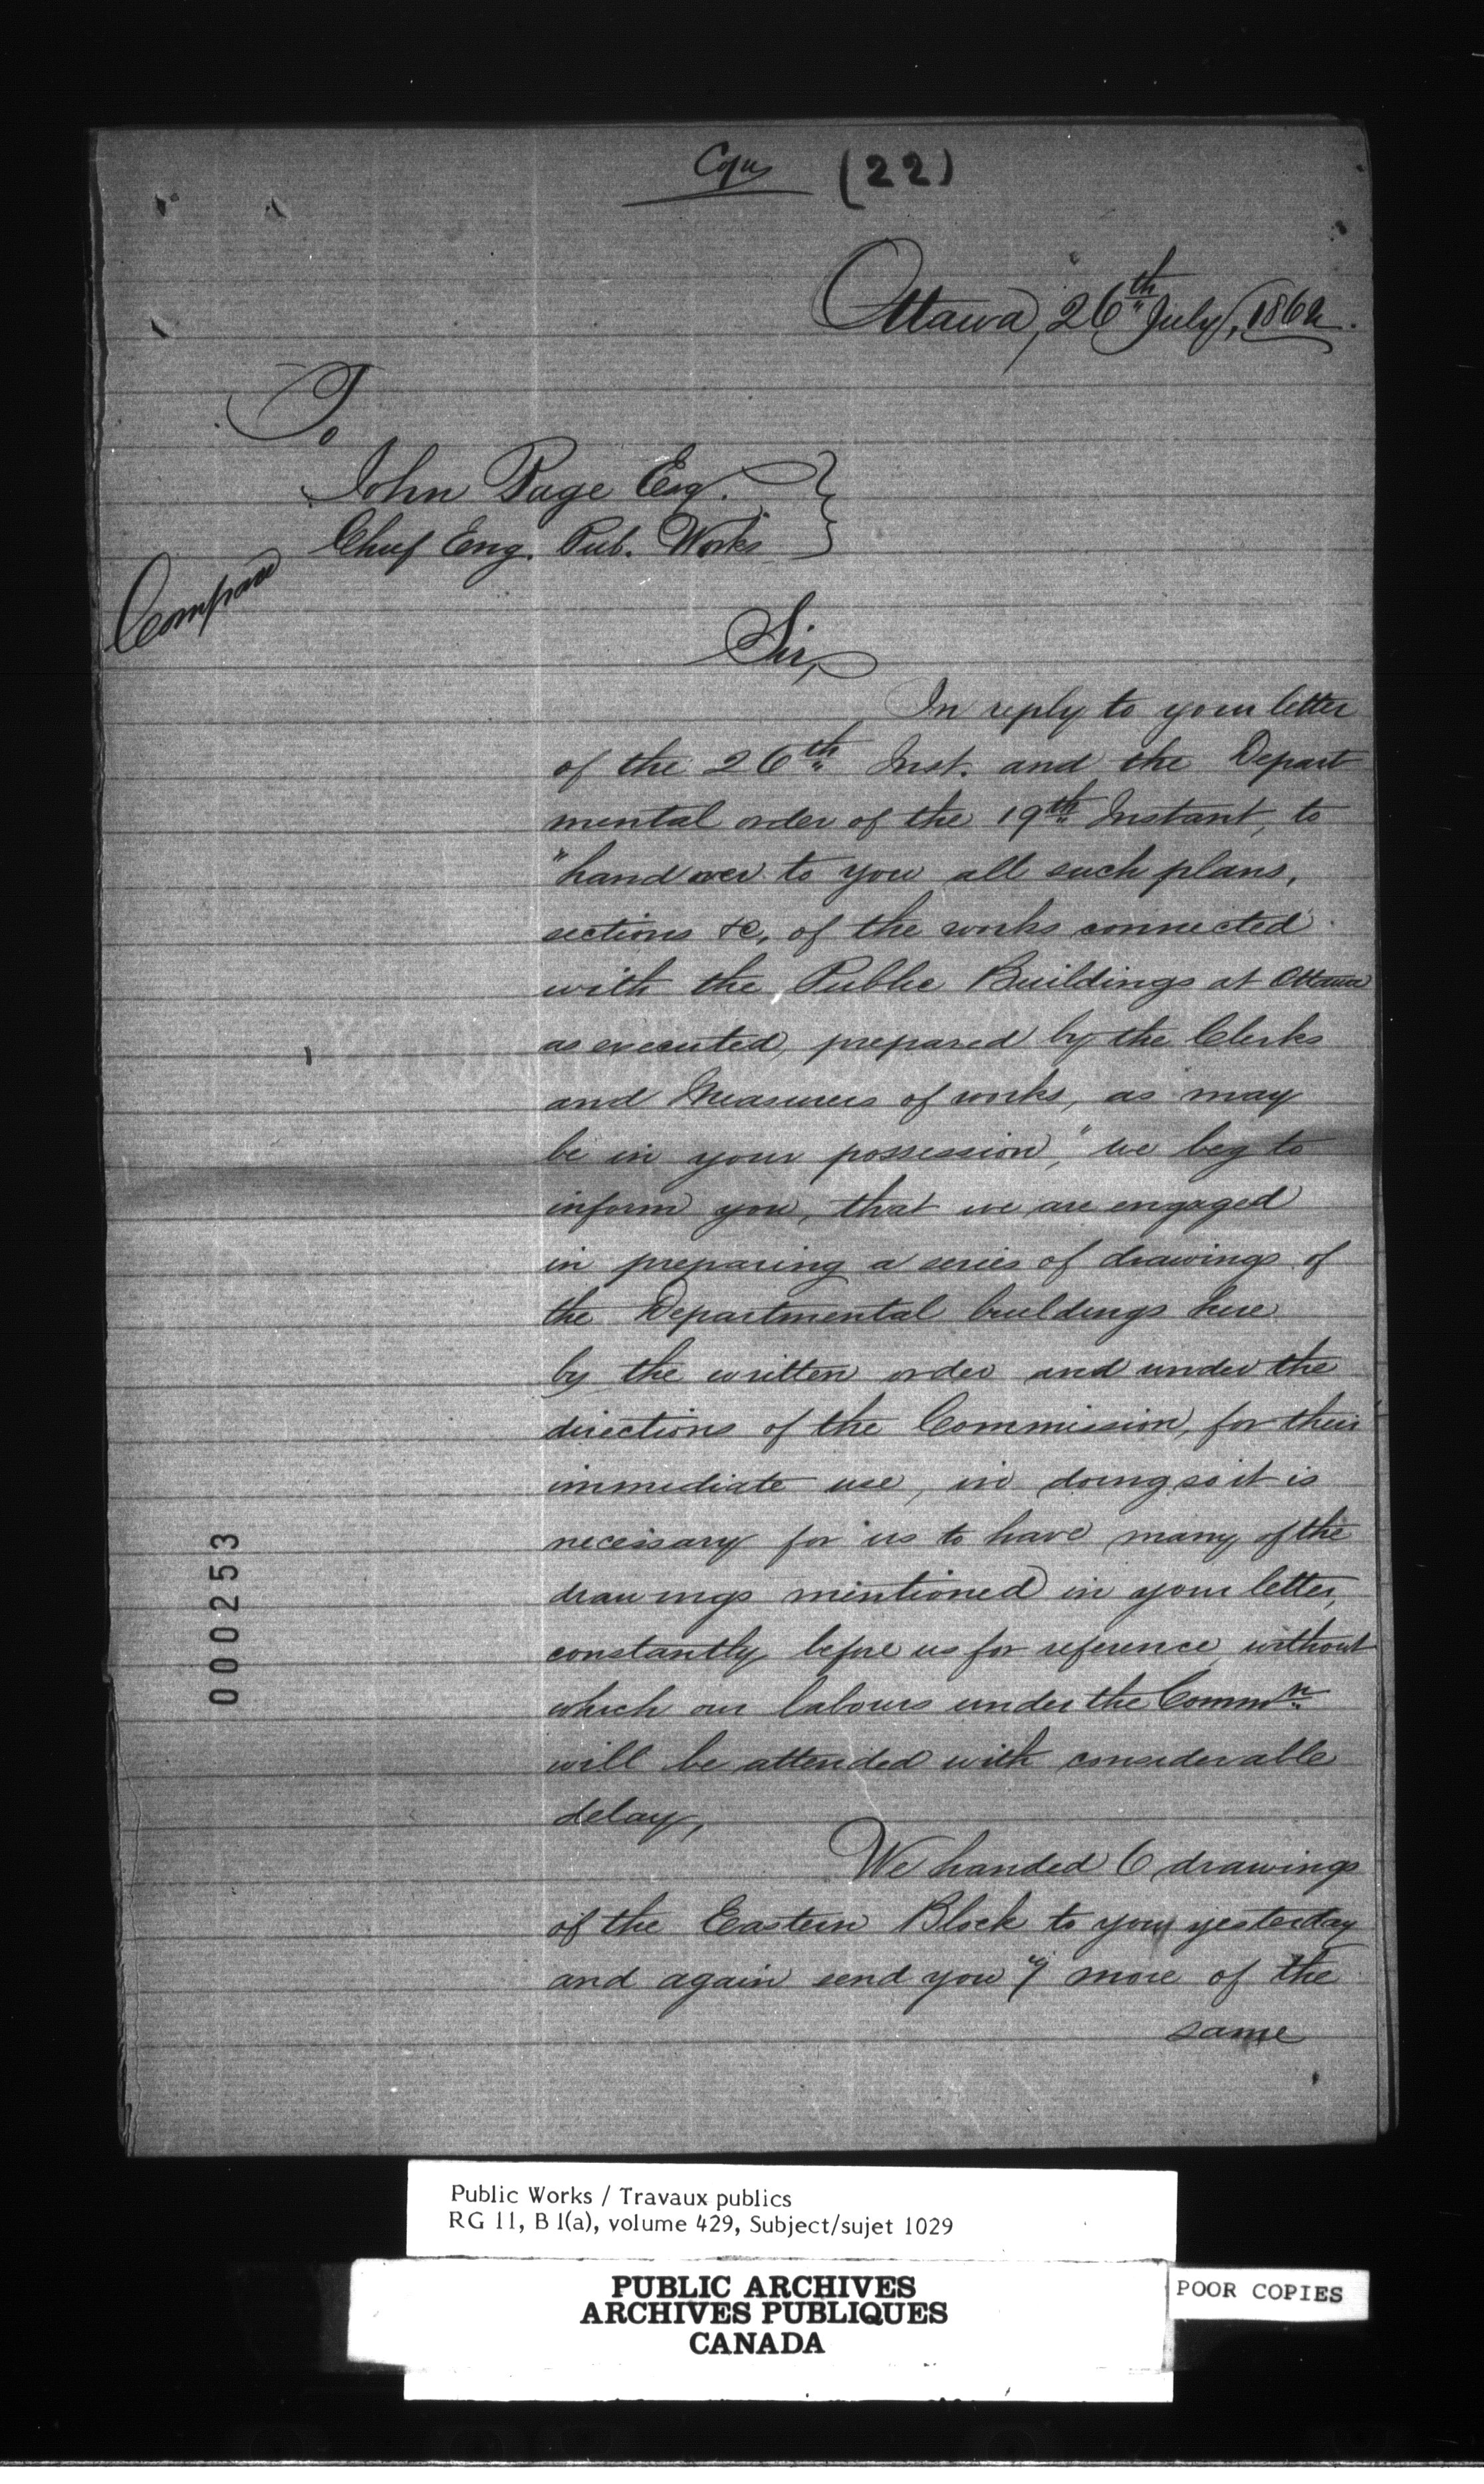 Copy (22)
Ottawa, 26th July, 1862.
To
John Page Esq.
Chief Eng. Pub. Works
Compare
Sir,
In reply to your letter
of the 26th Inst. and the Depart
mental order of the 19th Instant, to
"hand over to you all such plans,
sections &c, of the works connected
with the Public Buildings at Ottawa
as executed, prepared by the Clerks
and Measurers of works, as may
be in your possession," we beg to
inform you, that we are engaged
in preparing a series of drawings of
the Departmental buildings here
by the written order and under the
directions of the Commission, for their
immediate use, in doing so it is
necessary for us to have many of the
drawings mentioned in your letter,
constantly before us for reference, without
which our labours under the Commn
will be attended with considerable
delay,
We handed 6 drawings
of the Eastern Block to you yesterday
and again send you more of the
same
000253
Public Works / Travaux publics
RG 11, B 1(a), volume 429, Subject/sujet 1029
PUBLIC ARCHIVES
ARCHIVES PUBLIQUES
CANADA
POOR COPIES